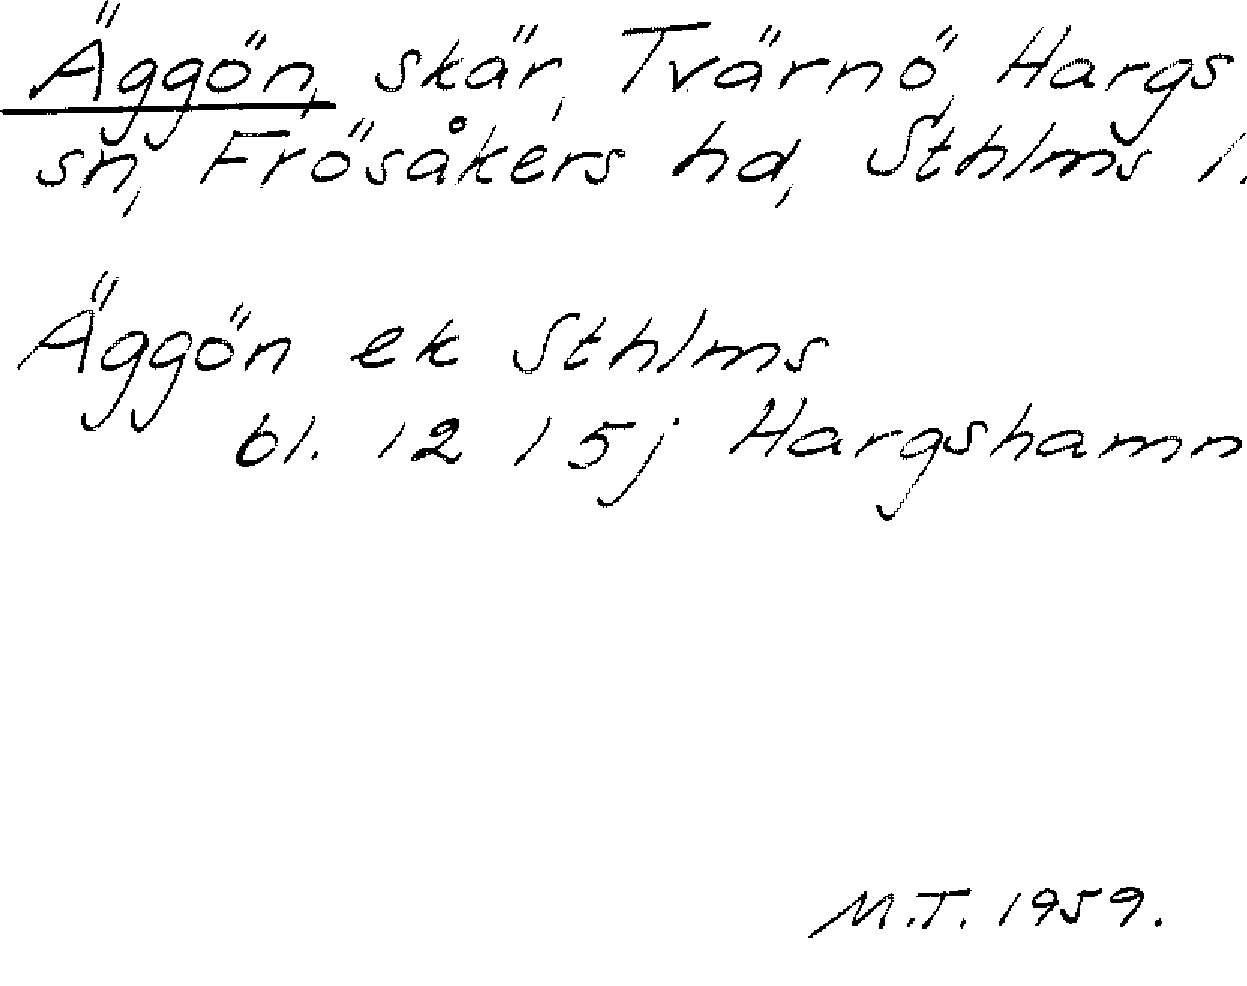 Äggön, skär, Tvärnö, Hargs
sn, Frösåkers hd, Sthlms l.
Äggön ek Sthlms
bl. 12 I 5j Hargshamn
M.T. 1959.